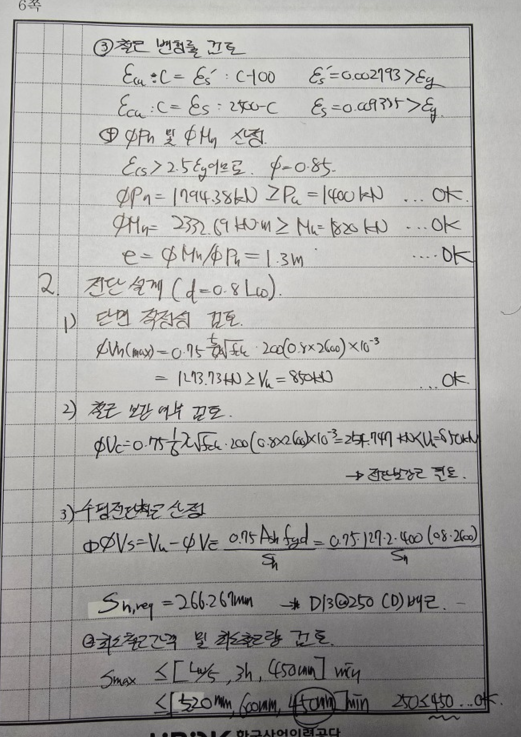 6쪽
③ 철근 변형률 검토
Ecu : C = Es' : C-100 Es' = 0.002793 > Ey
Ecu : C = Es : 2500-C Es = 0.009335 > Ey
④ ϕPn 및 ϕMn 산정
Es > 2.5Ey이므로. ϕ=0.85.
ϕPn = 1794.38kN ≥ Pu = 1400kN ... OK
ϕMn = 2332.69 kN·m ≥ Mu = 1820 kN ... OK
e = ϕMn/ϕPn = 1.3m .... OK
2. 전단 설계 (d=0.8Lw).
1) 단면 적정성 검토.
ϕVn(max) = 0.75 5/6 λ√fck · 200(0.8×2600)×10⁻³
= 1273.73kN ≥ Vu = 850kN ... OK.
2) 철근 보강 여부 검토.
ϕVc = 0.75 1/6 λ√fck · 200(0.8×2600)×10⁻³ = 254.747 kN < Vu = 850kN
→ 전단보강근 필요.
3) 수평전단철근 산정
① ϕVs = Vu - ϕVc = 0.75 Ash fyd / Sh = 0.75·127·2·400(0.8·2600) / Sh
Sh,req = 266.267mm → D13@250 (D) 배근.
② 최소철근간격 및 최소철근량 검토.
Smax ≤ [Lw/5, 3h, 450mm] min
≤ [520mm, 600mm, 450mm] min 250 ≤ 450 ... OK.
한국산업인력공단